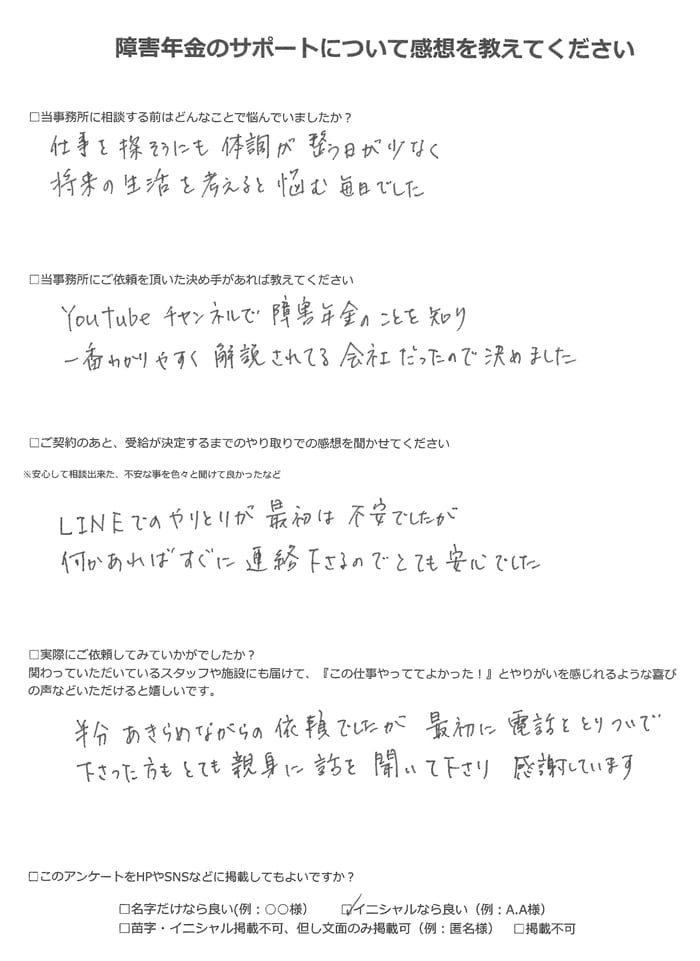 障害年金のサポートについて感想を教えてください
□当事務所に相談する前はどんなことで悩んでいましたか？
仕事を探そうにも 体調が 整う日が少なく
将来の生活を考えると 悩む 毎日でした
□当事務所にご依頼を頂いた決め手があれば教えてください
Youtubeチャンネルで 障害年金のことを知り
一番わかりやすく 解説されてる 会社だったので決めました
□ご契約のあと、受給が決定するまでのやり取りでの感想を聞かせてください
※安心して相談出来た、不安な事を色々と聞けて良かったなど
LINEでのやりとりが 最初は 不安でしたが
何かあればすぐに 連絡下さるのでとても 安心でした
□実際にご依頼してみていかがでしたか？
関わっていただいているスタッフや施設にも届けて、『この仕事やっててよかった！』とやりがいを感じれるような喜び
の声などいただけると嬉しいです。
半分 あきらめながらの 依頼でしたが 最初に 電話をとりついで
下さった方も とても 親身に 話を 聞いて下さり 感謝しています
□このアンケートをHPやSNSなどに掲載してもよいですか？
□名字だけなら良い(例：○○様） ☑イニシャルなら良い（例：A.A様）
□苗字・イニシャル掲載不可、但し文面のみ掲載可（例：匿名様） □掲載不可